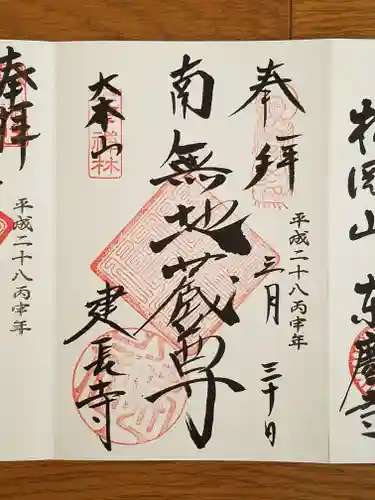 松岡山 東慶寺
奉拝
平成二十八丙申年
三月三十日
南無地蔵尊
大本山
建長寺
奉拝
平成二十八丙申年